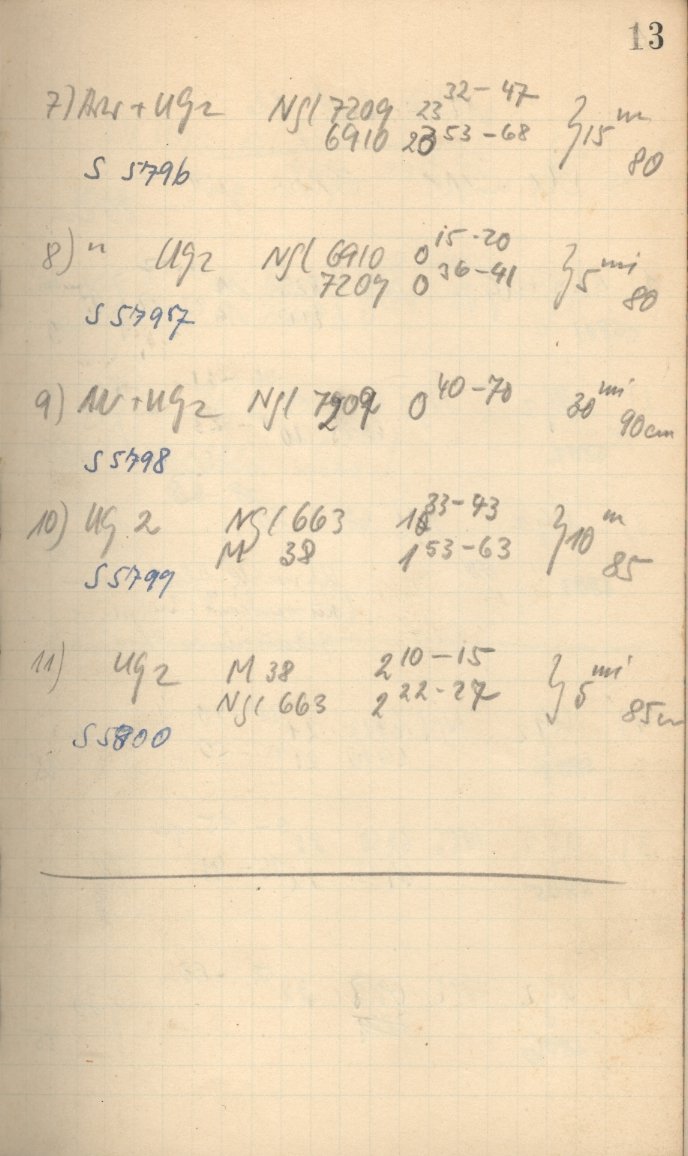 13
7) AW + UG2 NGC 7209 23 32-47 } 15 m
6910 23 53-68 80
S 5796
8) " UG2 NGC 6910 0 15-20 } 5 mi
7209 0 36-41 80
S 5797
9) AW + UG2 NGC 7209 0 40-70 30 mi 90cm
S 5798
10) UG 2 NGC 663 1 33-43 } 10 m
M 38 1 53-63 85
S 5799
11) UG2 M 38 2 10-15 } 5 mi
NGC 663 2 22-27 85cm
S 5800